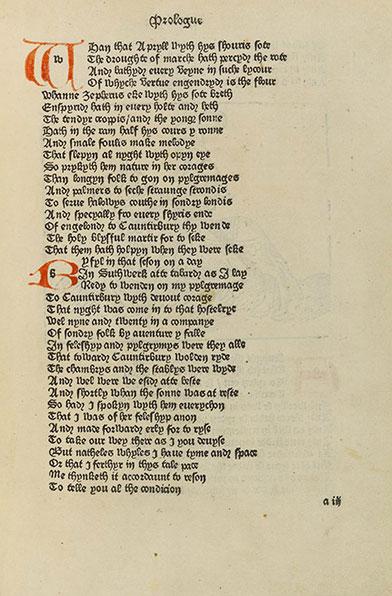 Prologue
WHan that Apryll wyth hys shouris sote
The droughte of marche hath percyd the rote
And bathyd euery veyne in suche lycour
Of whyche vertue engendryd is the flour
Whanne Zepherus eke wyth hys sote breth
Enspyryd hath in euery holte and heth
The tendyr croppis/and the yong sonne
Hath in the ram half hys cours y ronne
And smale foulis make melodye
That slepyn al nyght wyth opyn eye
So prykyth hem nature in her corages
Than longyn folk to gon on pylgremages
And palmers to seche straunge strondis
To serue halowys couthe in sondry londis
And specyally fro euery shyris ende
Of engelond to Caunturbury thy wende
The holy blysful martir for to seke
That them hath holpyn when they were seke
BYfyl in that seson on a day
In Suthwerk atte tabard as I lay
Redy to wenden on my pylgremage
To Caunturbury wyth deuout corage
That nyght was come in to that hostelrye
Wel nyne and twenty in a companye
Of sondry folk by auenture y falle
In feleshyp and pylgryms were they alle
That toward Caunturbury wolden ryde
The chambrys and the stablys were wyde
And wel were we esid atte beste
And shortly whan the sonne was at reste
So had I spokyn wyth hem euerychon
That I was of her feleshyp anon
And made forward erly for to ryse
To take our wey there as I you deuyse
But natheles whyles I haue tyme and space
Or that I forthyr in thys tale pace
Me thynketh it accordaunt to reson
To telle you al the condicion
a iij